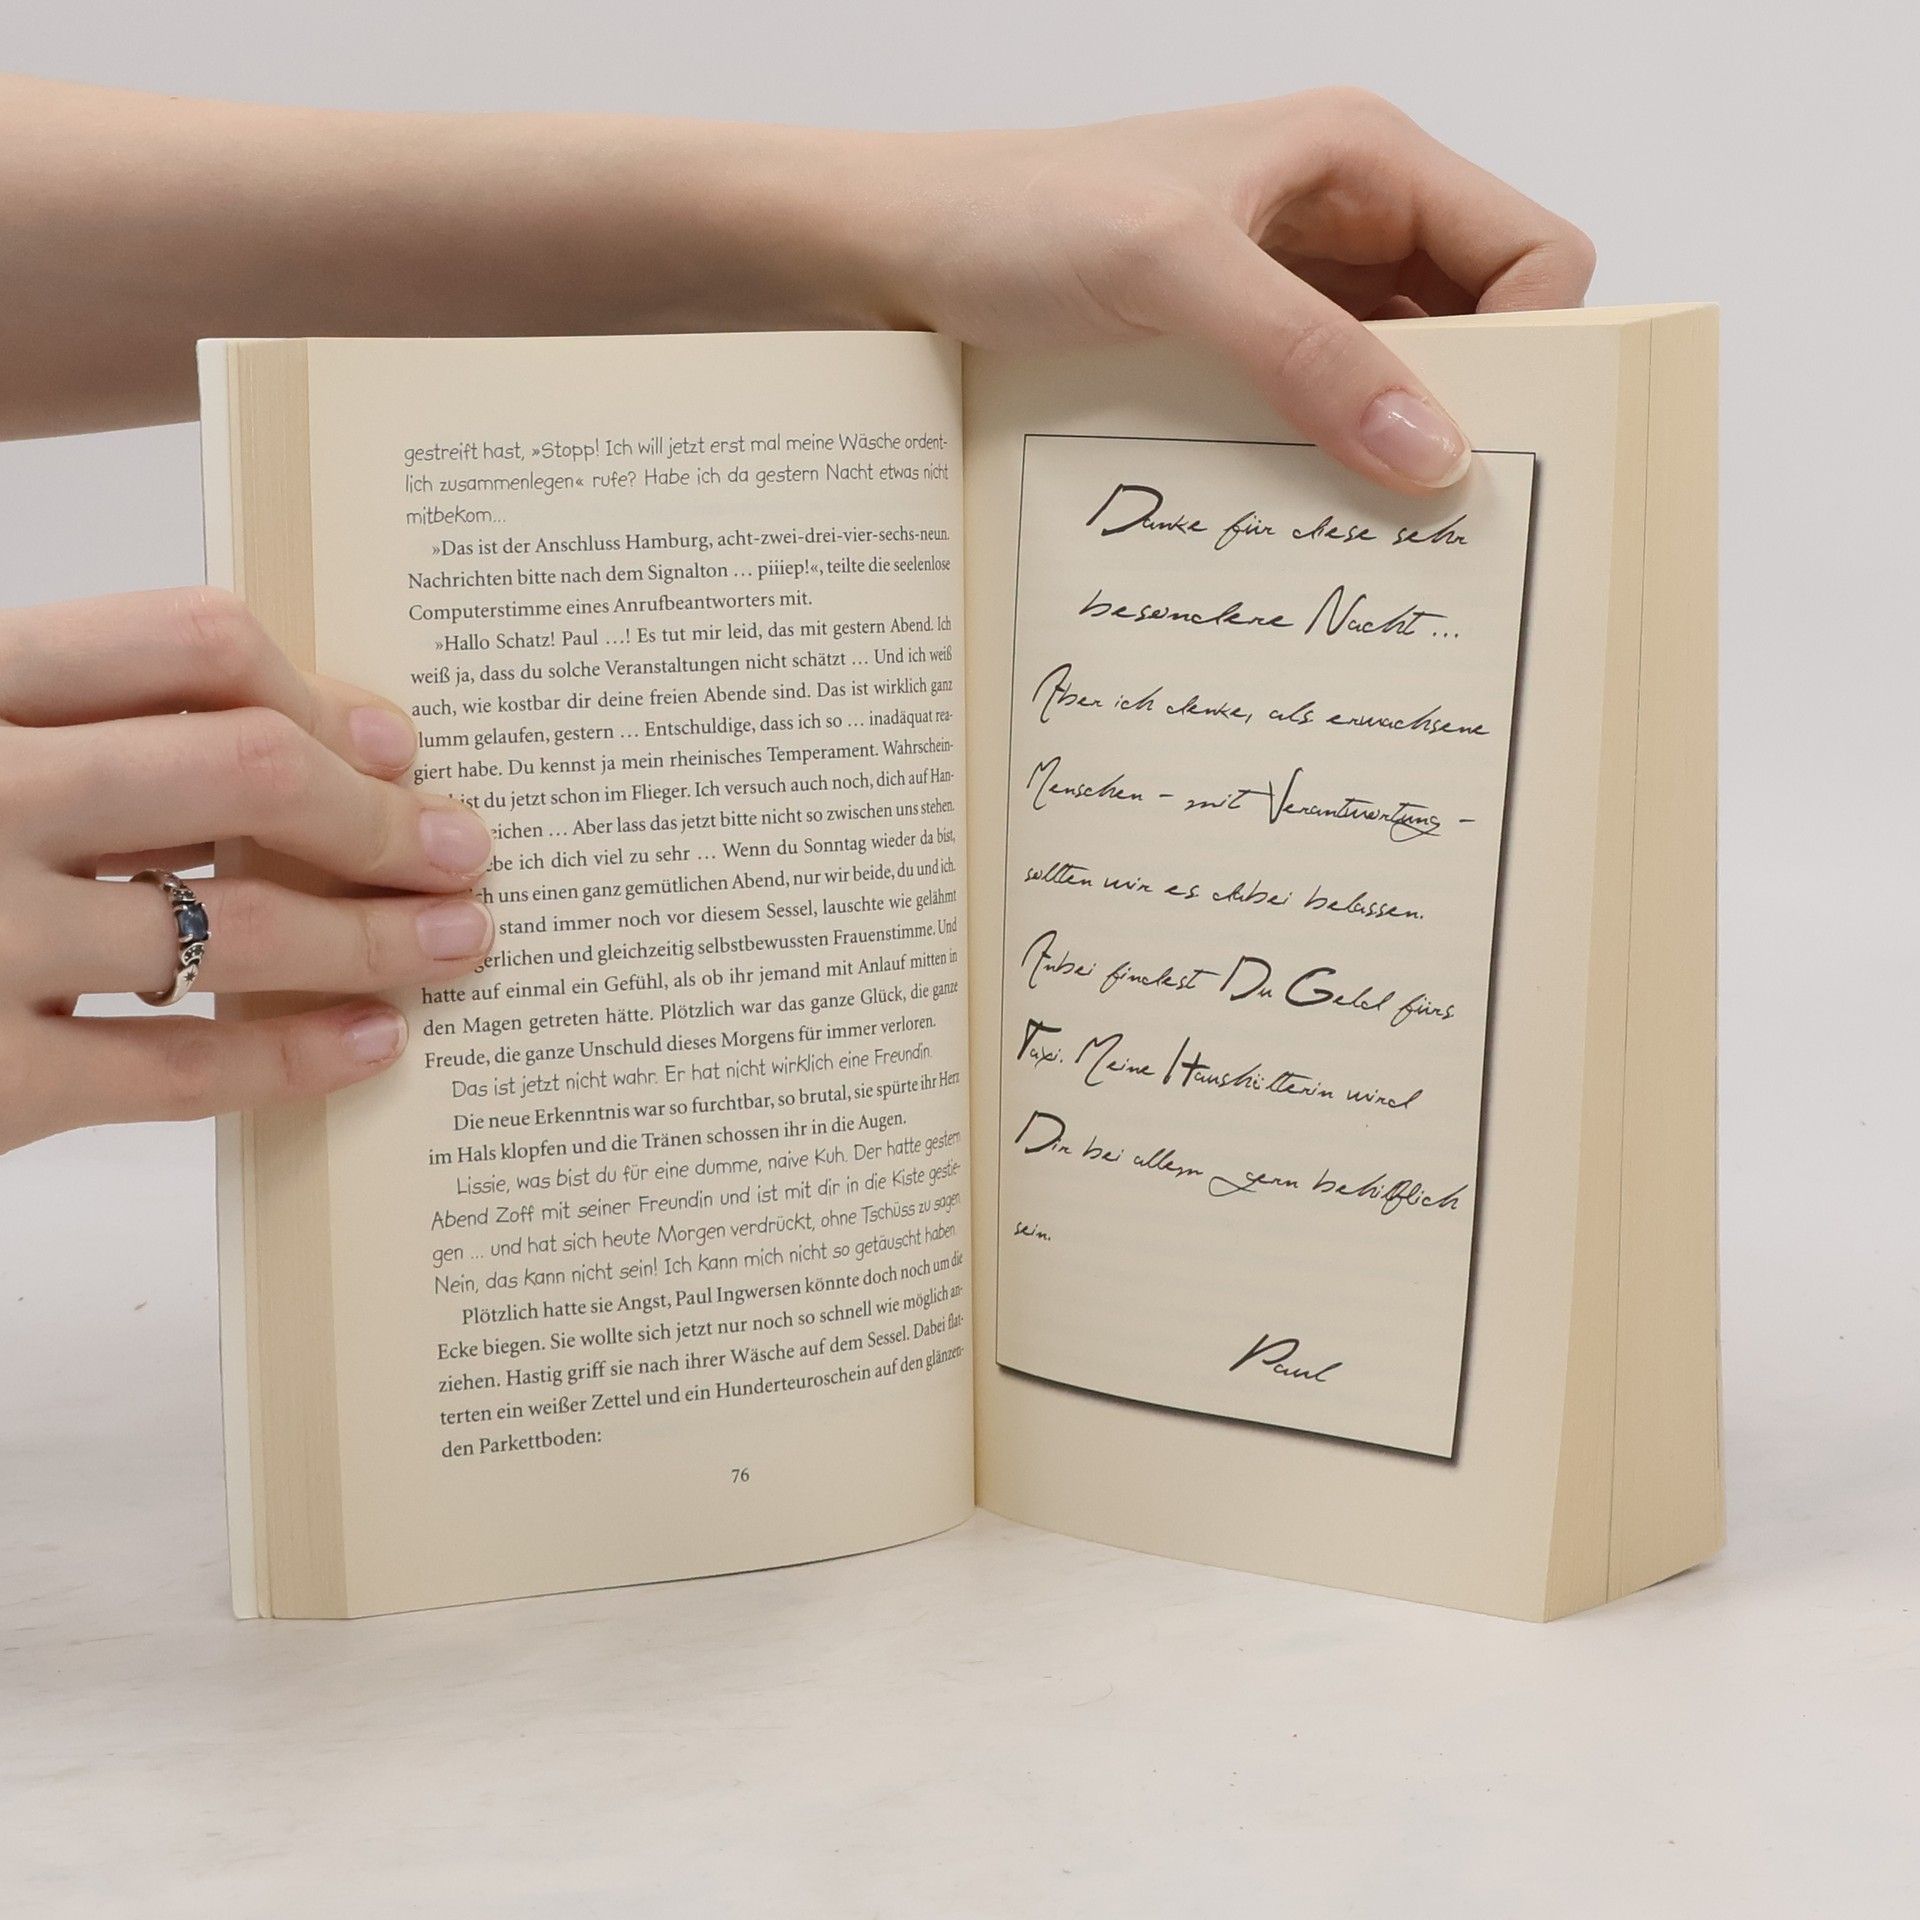 gestreift hast, »Stopp! Ich will jetzt erst mal meine Wäsche ordent-
lich zusammenlegen« rufe? Habe ich da gestern Nacht etwas nicht
mitbekom...
»Das ist der Anschluss Hamburg, acht-zwei-drei-vier-sechs-neun.
Nachrichten bitte nach dem Signalton … piiiep!«, teilte die seelenlose
Computerstimme eines Anrufbeantworters mit.
»Hallo Schatz! Paul …! Es tut mir leid, das mit gestern Abend. Ich
weiß ja, dass du solche Veranstaltungen nicht schätzt … Und ich weiß
auch, wie kostbar dir deine freien Abende sind. Das ist wirklich ganz
lumm gelaufen, gestern … Entschuldige, dass ich so … inadäquat rea-
giert habe. Du kennst ja mein rheinisches Temperament. Wahrschein-
ist du jetzt schon im Flieger. Ich versuch auch noch, dich auf Han-
eichen … Aber lass das jetzt bitte nicht so zwischen uns stehen.
ebe ich dich viel zu sehr … Wenn du Sonntag wieder da bist,
ch uns einen ganz gemütlichen Abend, nur wir beide, du und ich.
stand immer noch vor diesem Sessel, lauschte wie gelähmt
gerlichen und gleichzeitig selbstbewussten Frauenstimme. Und
hatte auf einmal ein Gefühl, als ob ihr jemand mit Anlauf mitten in
den Magen getreten hätte. Plötzlich war das ganze Glück, die ganze
Freude, die ganze Unschuld dieses Morgens für immer verloren.
Das ist jetzt nicht wahr. Er hat nicht wirklich eine Freundin.
Die neue Erkenntnis war so furchtbar, so brutal, sie spürte ihr Herz
im Hals klopfen und die Tränen schossen ihr in die Augen.
Lissie, was bist du für eine dumme, naive Kuh. Der hatte gestern
Abend Zoff mit seiner Freundin und ist mit dir in die Kiste gestie-
gen ... und hat sich heute Morgen verdrückt, ohne Tschüss zu sagen.
Nein, das kann nicht sein! Ich kann mich nicht so getäuscht haben.
Plötzlich hatte sie Angst, Paul Ingwersen könnte doch noch um die
Ecke biegen. Sie wollte sich jetzt nur noch so schnell wie möglich an-
ziehen. Hastig griff sie nach ihrer Wäsche auf dem Sessel. Dabei flat-
terten ein weißer Zettel und ein Hunderteuroschein auf den glänzen-
den Parkettboden:
76
Danke für diese sehr
besondere Nacht ...
Aber ich denke, als erwachsene
Menschen – mit Verantwortung –
sollten wir es dabei belassen.
Anbei findest Du Geld fürs
Taxi. Meine Haushälterin wird
Dir bei allem gern behilflich
sein.
Paul